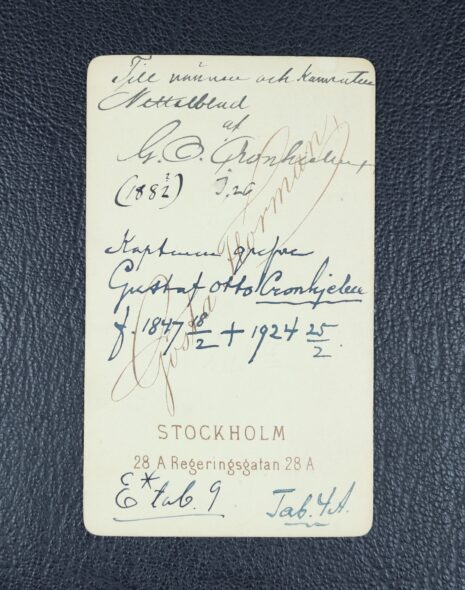 Till vännen och Kamraten
Nettelblad
af
G. O. Cronhielm
(1882)
Kaptenen grefve
Gustaf Otto Cronhjelm
f. 1847 18/2 + 1924 25/2.
Gösta Florman
STOCKHOLM
28 A Regeringsgatan 28 A
E* tab. 9
Tab. 4A.